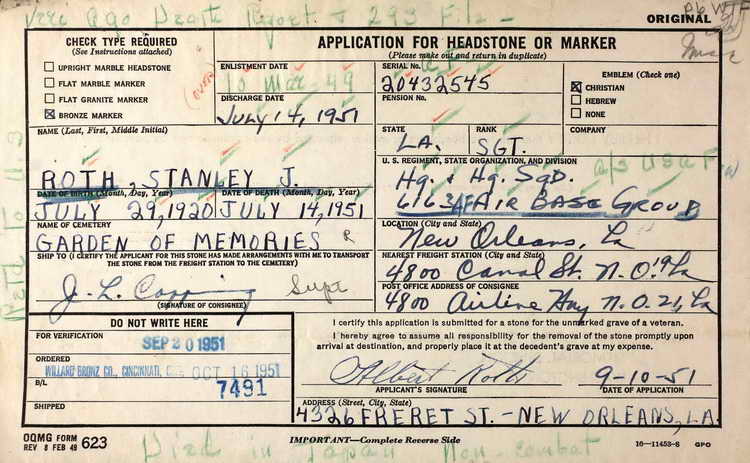 Vere Ago Death Report & 293 File -
ORIGINAL
CHECK TYPE REQUIRED
(See Instructions attached)
UPRIGHT MARBLE HEADSTONE
FLAT MARBLE MARKER
FLAT GRANITE MARKER
BRONZE MARKER
(over)
APPLICATION FOR HEADSTONE OR MARKER
(Please make out and return in duplicate)
ENLISTMENT DATE
10 Mar 49
DISCHARGE DATE
JULY 14, 1951
SERIAL No.
20432545
PENSION No.
EMBLEM (Check one)
CHRISTIAN
HEBREW
NONE
NAME (Last, First, Middle Initial)
ROTH, STANLEY J.
STATE
LA.
RANK
SGT.
COMPANY
U. S. REGIMENT, STATE ORGANIZATION, AND DIVISION
Hq. & Hq. Sqd.
6163 AF AIR BASE GROUP
DATE OF BIRTH (Month, Day, Year)
JULY 29, 1920
DATE OF DEATH (Month, Day, Year)
JULY 14, 1951
NAME OF CEMETERY
GARDEN OF MEMORIES
LOCATION (City and State)
New Orleans, La
SHIP TO (I CERTIFY THE APPLICANT FOR THIS STONE HAS MADE ARRANGEMENTS WITH ME TO TRANSPORT
THE STONE FROM THE FREIGHT STATION TO THE CEMETERY)
Supt
(SIGNATURE OF CONSIGNEE)
NEAREST FREIGHT STATION (City and State)
4800 Canal St. N.O. 19 La
POST OFFICE ADDRESS OF CONSIGNEE
4800 Airline Hwy N.O. 21, La
DO NOT WRITE HERE
FOR VERIFICATION
SEP 20 1951
ORDERED
WILLARD BRONZ CO., CINCINNATI, OCT 16 1951
B/L
7491
SHIPPED
I certify this application is submitted for a stone for the unmarked grave of a veteran.
I hereby agree to assume all responsibility for the removal of the stone promptly upon
arrival at destination, and properly place it at the decedent's grave at my expense.
Albert Roth
APPLICANT'S SIGNATURE
9-10-51
DATE OF APPLICATION
ADDRESS (Street, City, State)
4326 FRERET ST. - NEW ORLEANS, LA.
OQMG FORM
REV 8 FEB 49
623
IMPORTANT—Complete Reverse Side
16—11453-8 GPO
Died in Japan Non-combat